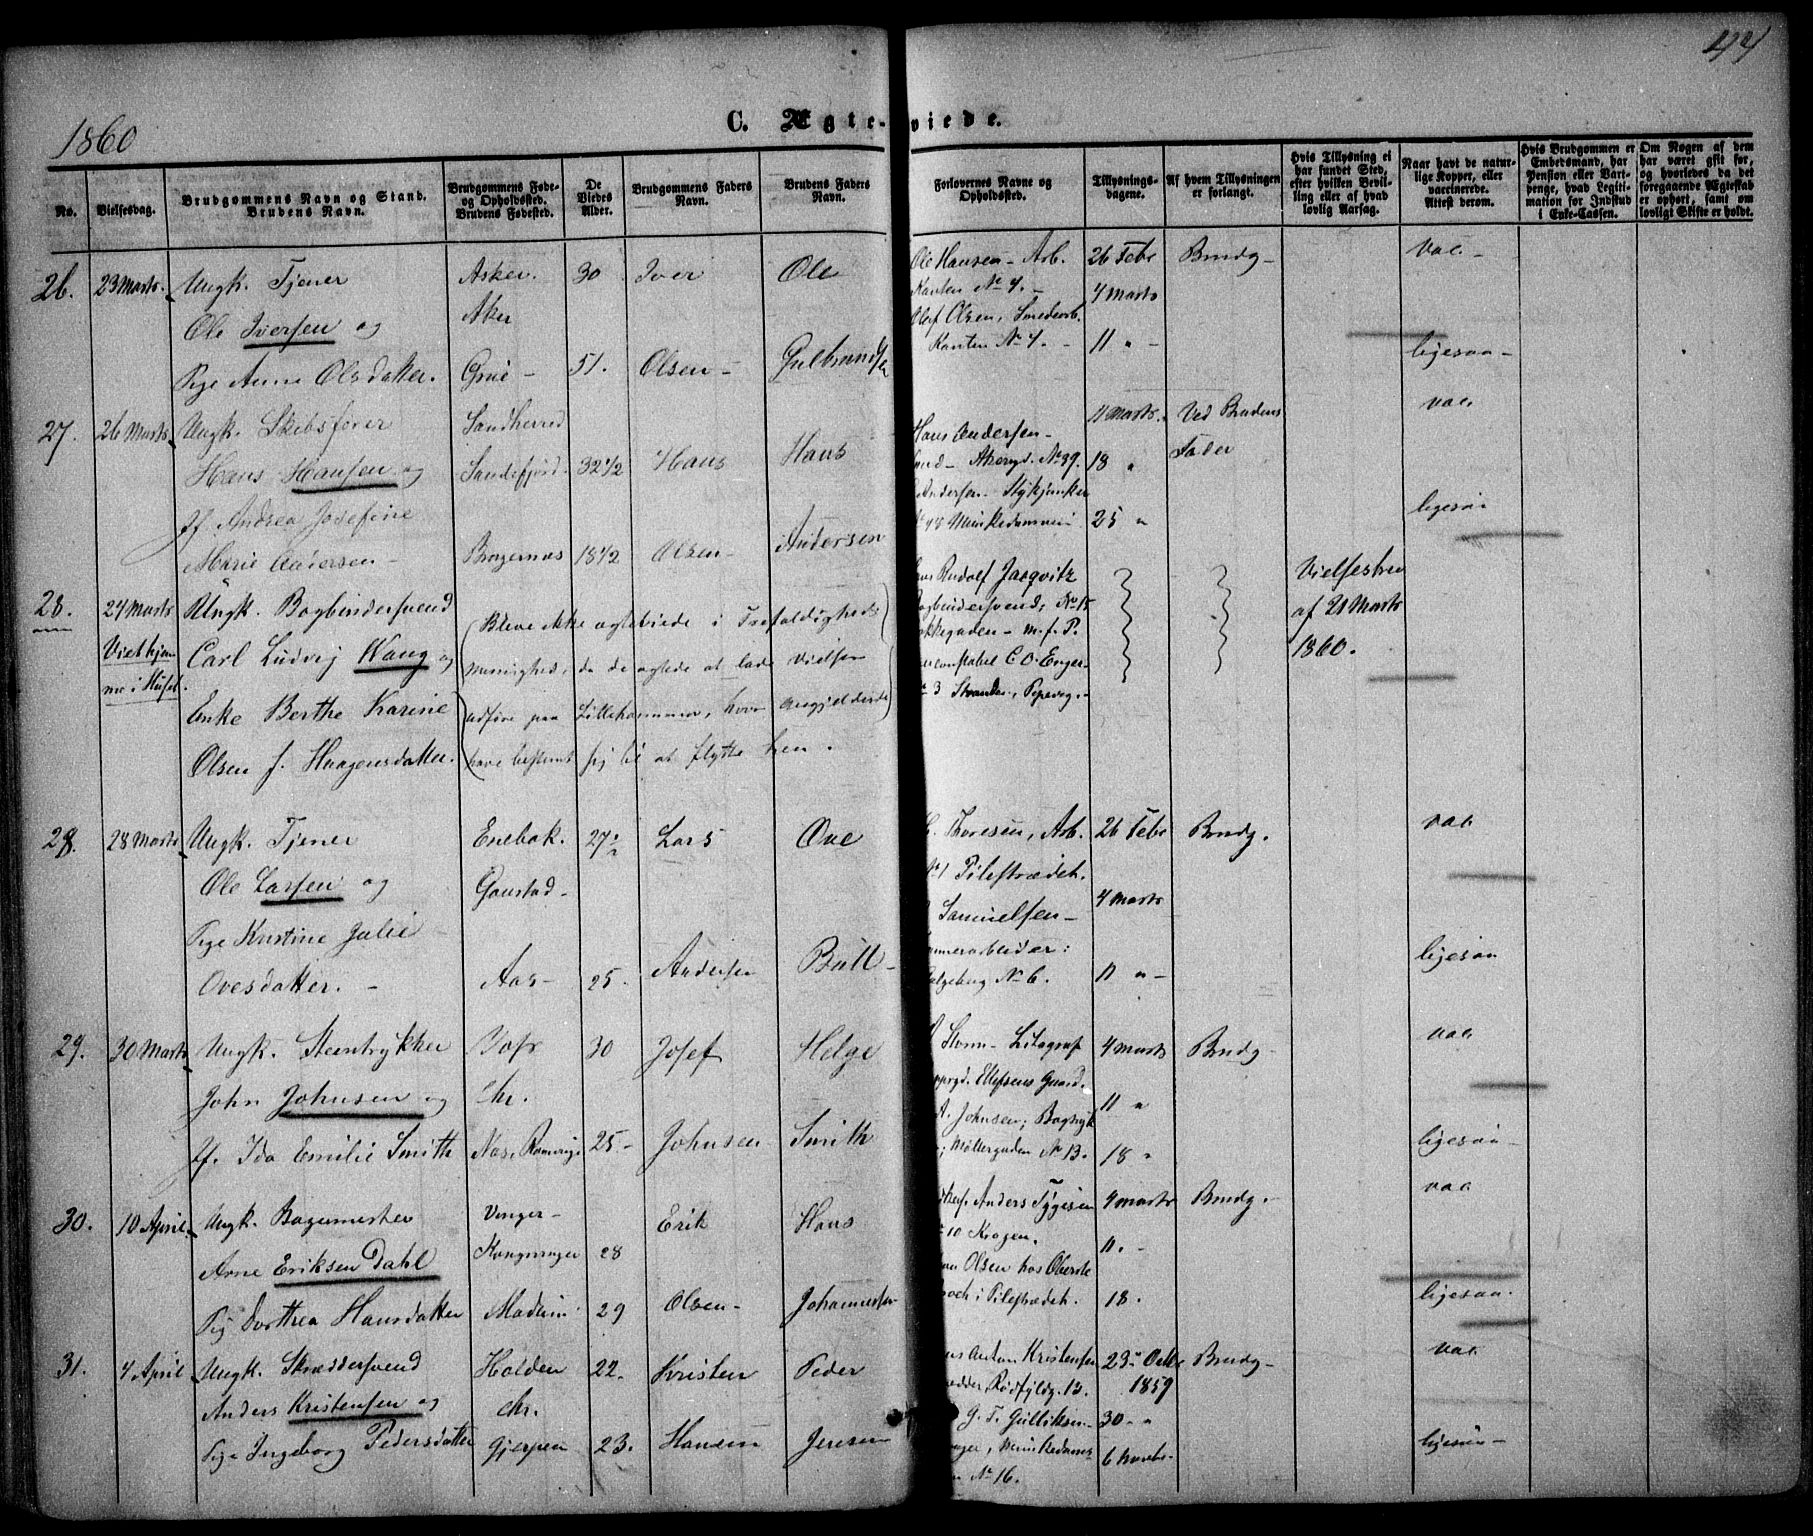 44
1860
C. Ægte-viede.
No.
Vielsesdag.
Brudgommens Navn og Stand. Brudens Navn.
Brudgommens Føde- og Opholdssted. Brudens Fødested.
De Viedes Alder.
Brudgommens Faders Navn.
Brudens Faders Navn.
Forlovernes Navne og Opholdssted.
Tillysnings- dagene.
Af hvem Tillysningen er forlangt.
Hvis Tillysning ei har fundet Sted, efter hvilken Bevil- ling eller af hvad lovlig Aarsag.
Naar havt de natur- lige Kopper, eller vaccinerede. Attest derom.
Hvis Brudgommen er Embedsmand, har Pension eller Vart- penge, hvad Legiti- mation for Indskud i Enke-Cassen.
Om Nogen af dem har været gift før, og hvorledes da det foregaaende Ægteskab er ophørt, samt om lovligt Skifte er holdt.
26. 23 Marts. Ungk. Tjener Asker. 30 Iver Ole
Ole Iversen og Aker
Pige Anne Olsdatter. Grue - 51. Olsen - Gulbrandsen
Ole Hansen - Arb. 26 Febr Brudg - vac -
Kanten No 4. - 4 Marts
Olof Olsen, Smedearb.
Kanten No 4. - 11 " - ligesaa -
27. 26 Marts. Ungk. Skibsfører Sandherred
Hans Hansen og Sandefjord. 32 1/2 Hans Hans
Jf. Andrea Josefine
Marie Andersen - Bragernæs 18 1/2 Olsen - Andersen
11 Marts. Ved Brudens vac.
Hans Andersen - Fader
Akersgd. No 39. 18 "
Andersen - Stykjunker ligesaa
48 Munkedammen 25 "
28. 24 Marts Ungk. Bogbindersvend
Viet hjemme i Huset. Carl Ludvig Wang og
Enke Berthe Karine
Olsen f. Haagensdatter.
(Bleve ikke ægteviede i Trefoldigheds
menighed, da de agtede at lade Vielsen
udføre paa Lillehammer, hvor angjeldende
have bestemt sig til at flytte hen.
Rudolf Jacqvitz Vielsesbrev
Bogbindersvend, No 15 af 21 Marts
gaden - m. f. P. 1860.
constabel C. O. Enger-
3 Stranden, Pepervig. -
28. 28 Marts Ungk. Tjener Enebak. 27 1/2 Lars Ove
Ole Larsen og Gaustad -
Pige Kristine Julie
Ovesdatter. - Aas - 25. Andersen Bull -
Thoresen, Arb. 26 Febr Brudg. vac
No 1 Pilestrædet.
Samuelsen - 4 Marts
arbeider: ligesaa
No 6. 11 " -
29. 30 Marts Ungk. Steentrykker 30 Josef Helge
John Johnsen og Chr.
Jf. Ida Emilie Smith Næs. Romerige 25 - Johnsen Smith
Storm - Litograf 4 Marts Brudg - vac
Ellefsens Gaard. 11 "
A. Johnsen; Bogtryk
Møllergaden No 13. 18 " ligesaa -
30. 10 April. Ungk. Bagermester Vinger - Erik Hans
Arne Eriksen Dahl Kongsvinger 28
Pig Dorthea Hansdatter Modum 29 Olsen - Johannesen
Anders Tygesen 4 Marts Brudg. - vac
10 Krogen. 11. -
Olsen hos Oberste
i Pilestrædet. 18. - ligesaa.
31. 4 April. Ungk. Skræddersvend Holden 22. Kristen Peder
Anders Kristensen og Chr.
Pige Ingeborg Pedersdatter Gjerpen 23. Hansen Jensen
Anton Kristensen 23 Octbr Brudg - vac
Rødfyldg. 13. 1859
G. T. Gulliksen - 30 - "
Munkedams- 6 Novbr. ligesaa -
No 16.